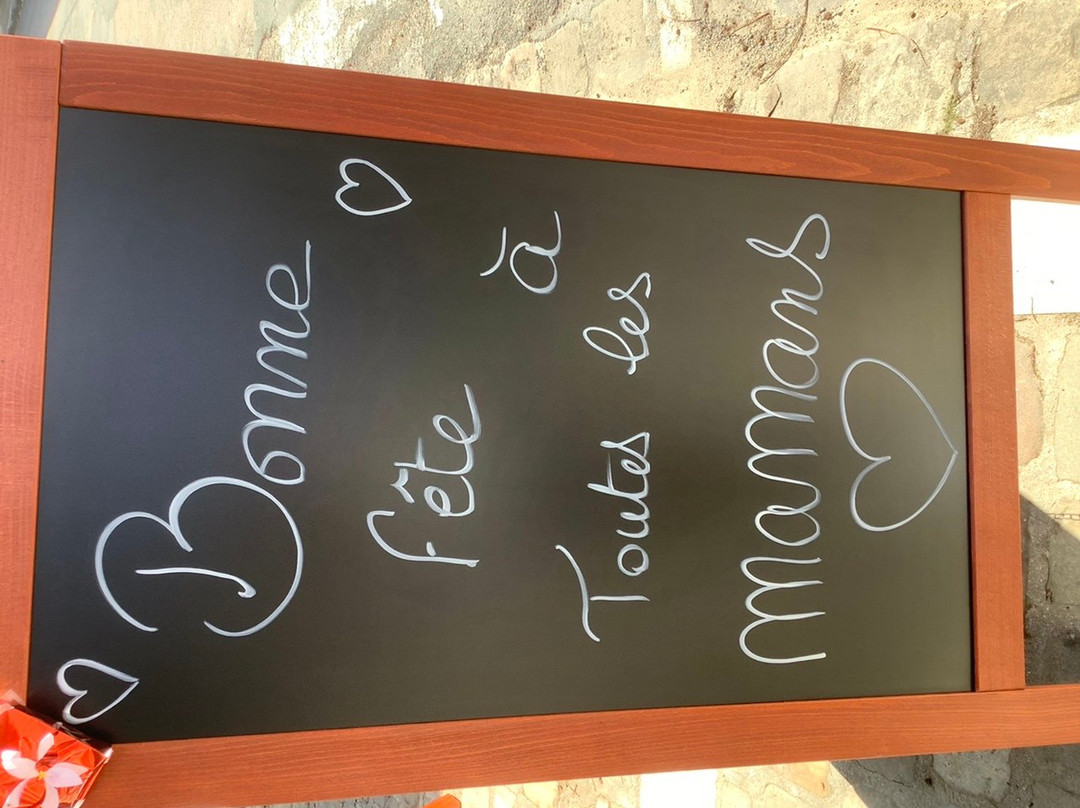 Bonne
fête à
Toutes les
mamans